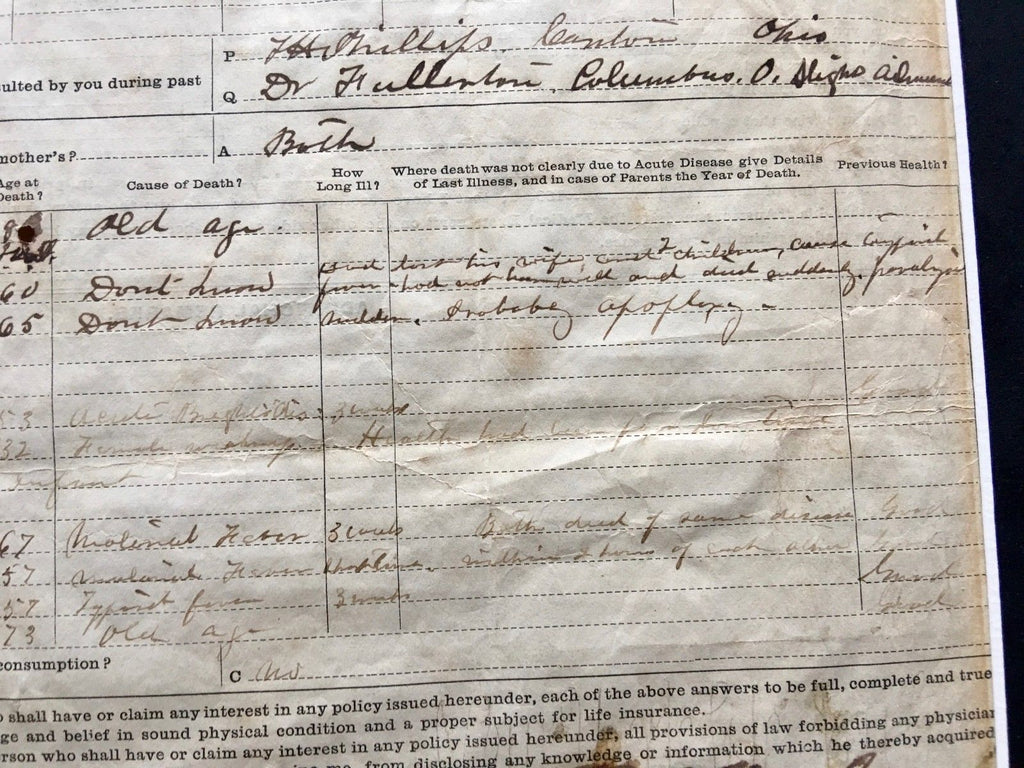 P T H Phillips. Canton Ohio
ulted by you during past
Q Dr Fullerton, Columbus. O. Slight
mother's? A Both
Age at Death? Cause of Death? How Long Ill? Where death was not clearly due to Acute Disease give Details of Last Illness, and in case of Parents the Year of Death. Previous Health?
Old age.
had lost his wife and 7 children, cause typhoid
60 Dont know fever - had not been well and died suddenly. paralysis
65 Dont know sudden. Probably apoplexy -
53 Acute 3 weeks Good
32 Female Health had been for
Infant
67 Malarial Fever 3 weeks Both died of same disease Good
57 Malarial Fever within 2 hours of each other
57 Typoid fever 3 weeks Good
73 Old age Good
consumption? C No
shall have or claim any interest in any policy issued hereunder, each of the above answers to be full, complete and true
ge and belief in sound physical condition and a proper subject for life insurance.
erson who shall have or claim any interest in any policy issued hereunder, all provisions of law forbidding any physician
me, from disclosing any knowledge or information which he thereby acquired